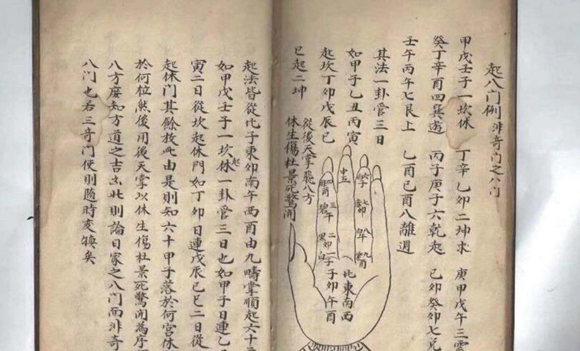 起八門例 非奇門之八門
甲戊壬子一坎休 丁辛乙卯二坤求 庚甲戊午三
癸丁辛酉四巽遊 丙子庚子六乾起 己卯癸卯七兌
壬午丙午七艮上 乙酉己酉八離週
其法一卦管三日
如甲子乙丑丙寅
起坎丁卯戊辰己
巳起二坤
從後天掌飛八方
休生傷杜景死驚開
北東南西
子卯午酉
起法皆從北子東卯南午西酉由九疇掌順起六十
如甲戊壬子一坎休一卦管三日也如甲子日連乙
寅三日從坎起休門如丁卯日連戊辰己巳三日從
起休門其餘放此由是則知六十甲子落於何宮休
於何位然後用後天掌以休生傷杜景死驚開為序
八方庶知方道之吉凶此則論日家之八門而非奇
八門也若三奇門使則隨時變換矣